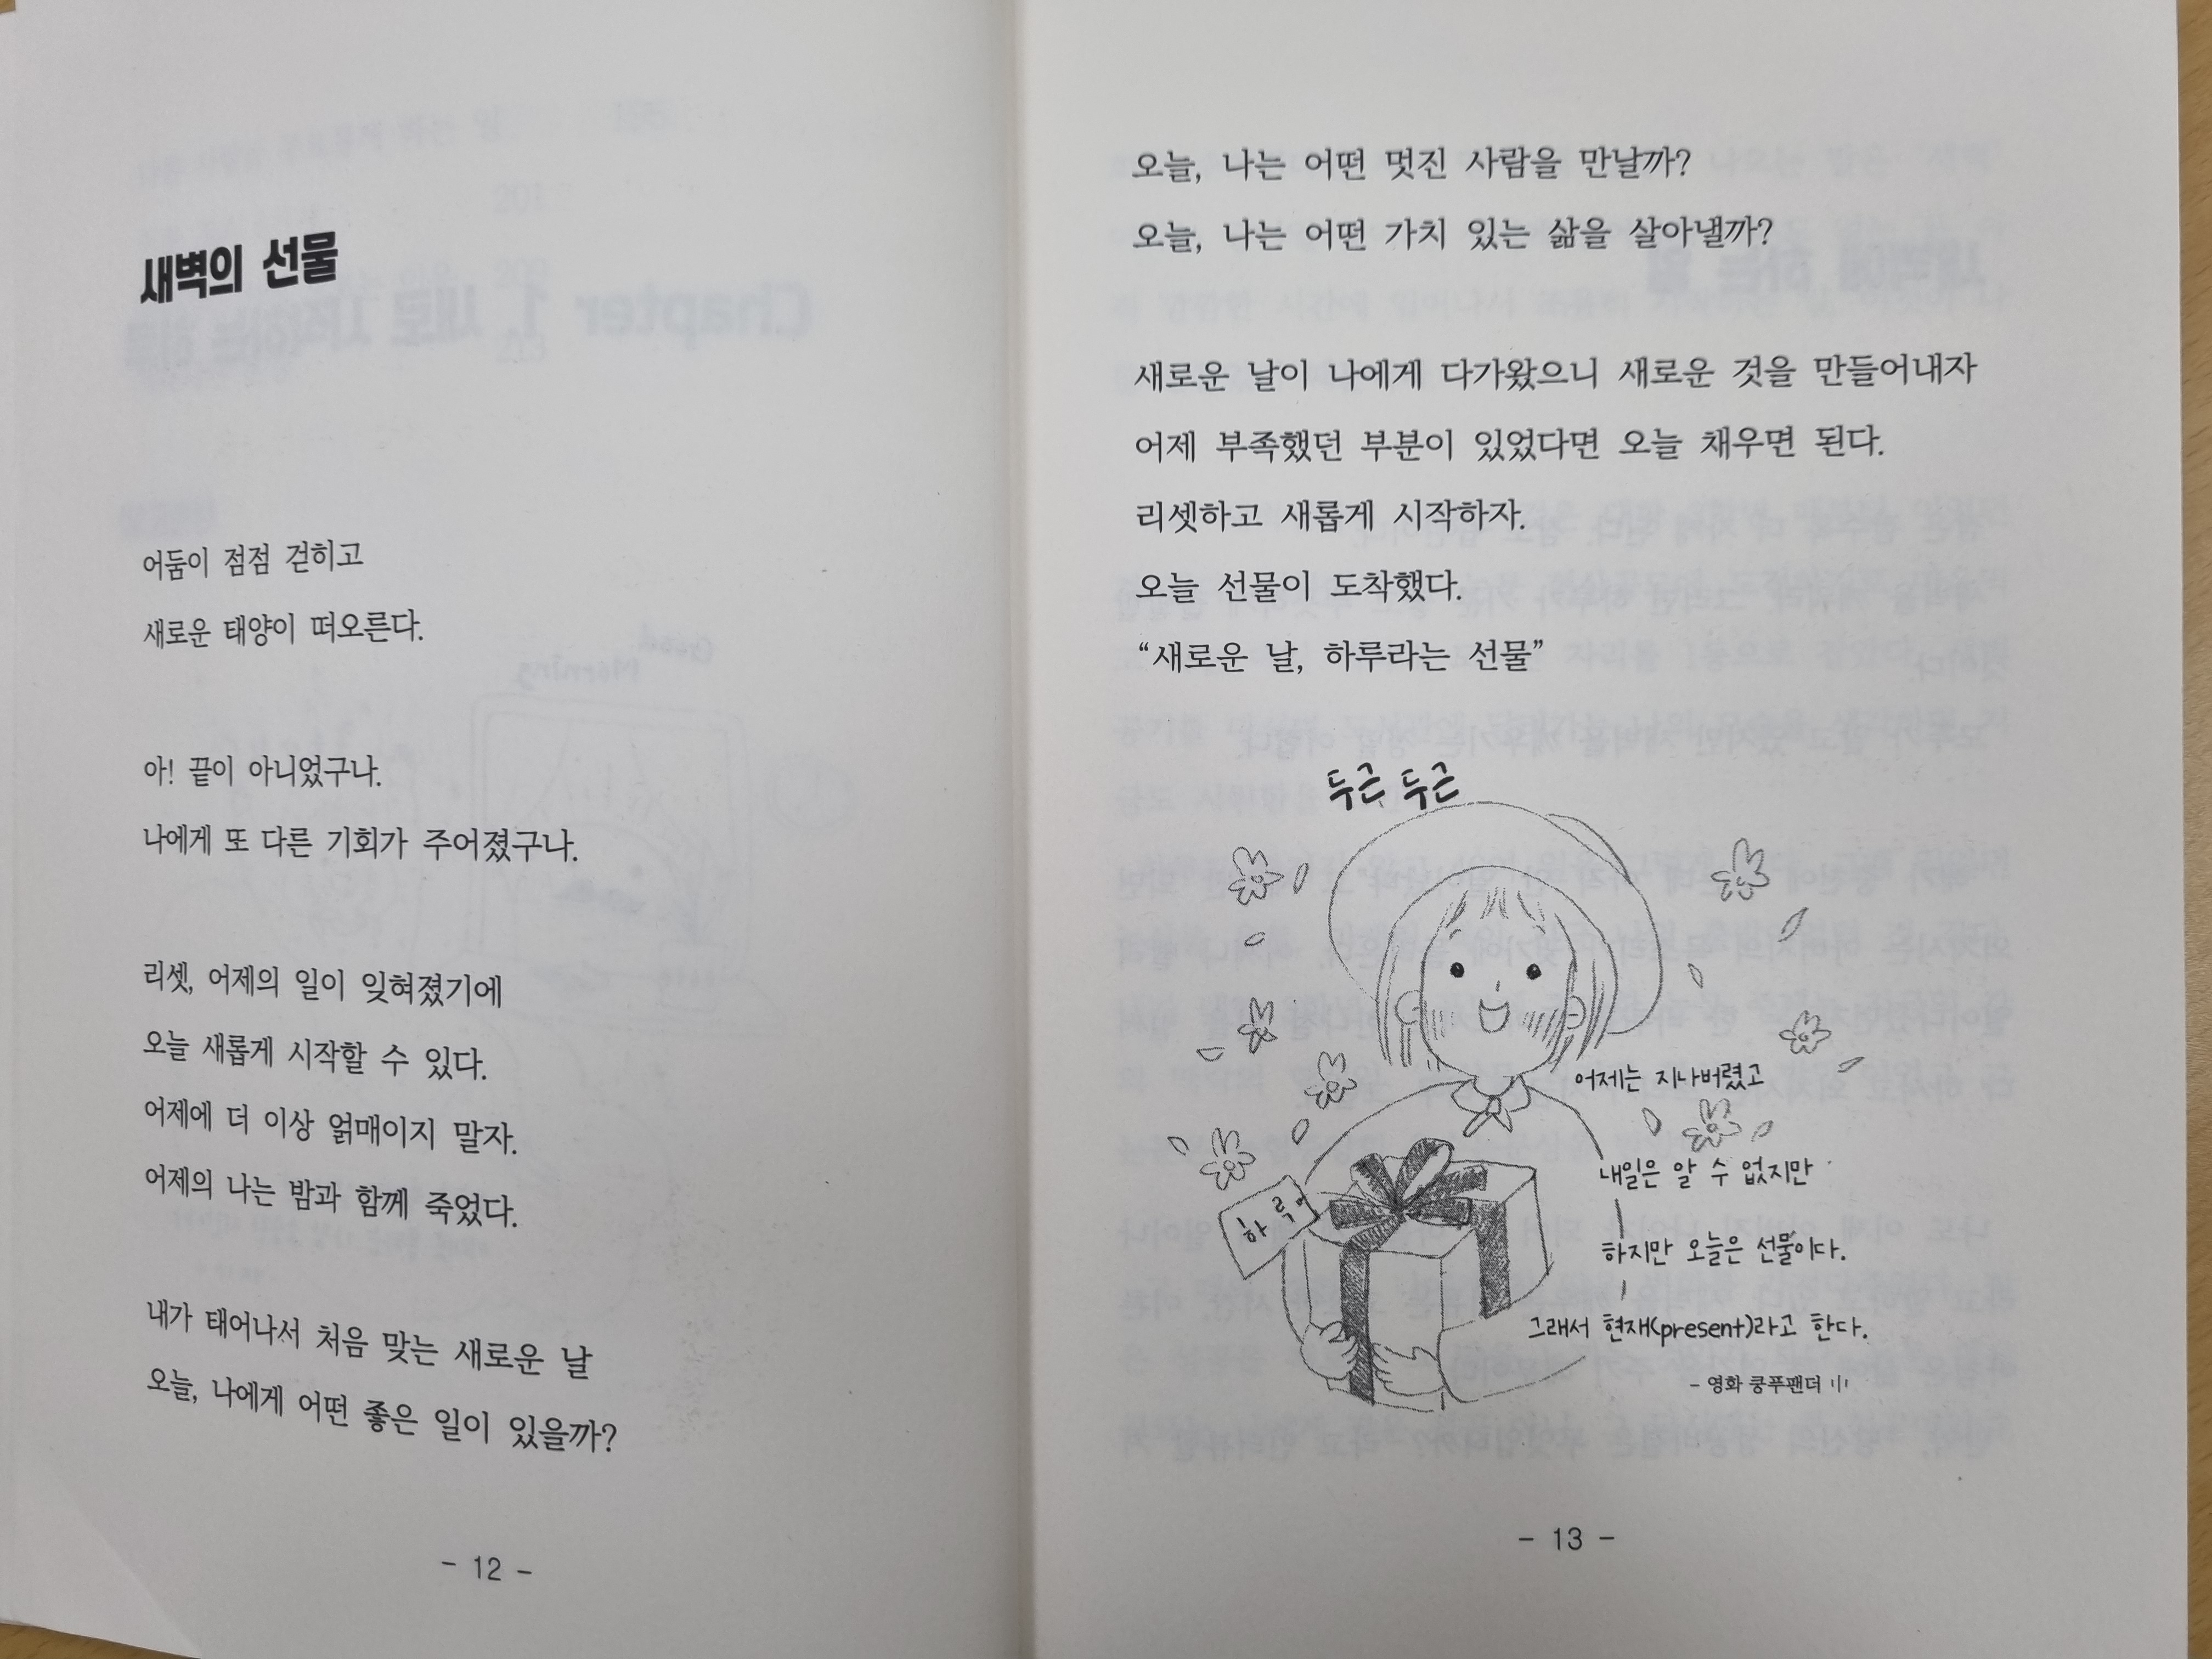 새벽의 선물
어둠이 점점 걷히고
새로운 태양이 떠오른다.
아! 끝이 아니었구나.
나에게 또 다른 기회가 주어졌구나.
리셋, 어제의 일이 잊혀졌기에
오늘 새롭게 시작할 수 있다.
어제에 더 이상 얽매이지 말자.
어제의 나는 밤과 함께 죽었다.
내가 태어나서 처음 맞는 새로운 날
오늘, 나에게 어떤 좋은 일이 있을까?
- 12 -
오늘, 나는 어떤 멋진 사람을 만날까?
오늘, 나는 어떤 가치 있는 삶을 살아낼까?
새로운 날이 나에게 다가왔으니 새로운 것을 만들어내자
어제 부족했던 부분이 있었다면 오늘 채우면 된다.
리셋하고 새롭게 시작하자.
오늘 선물이 도착했다.
“새로운 날, 하루라는 선물”
두근 두근
하루
어제는 지나버렸고
내일은 알 수 없지만
하지만 오늘은 선물이다.
그래서 현재(present)라고 한다.
- 영화 쿵푸팬더
- 13 -